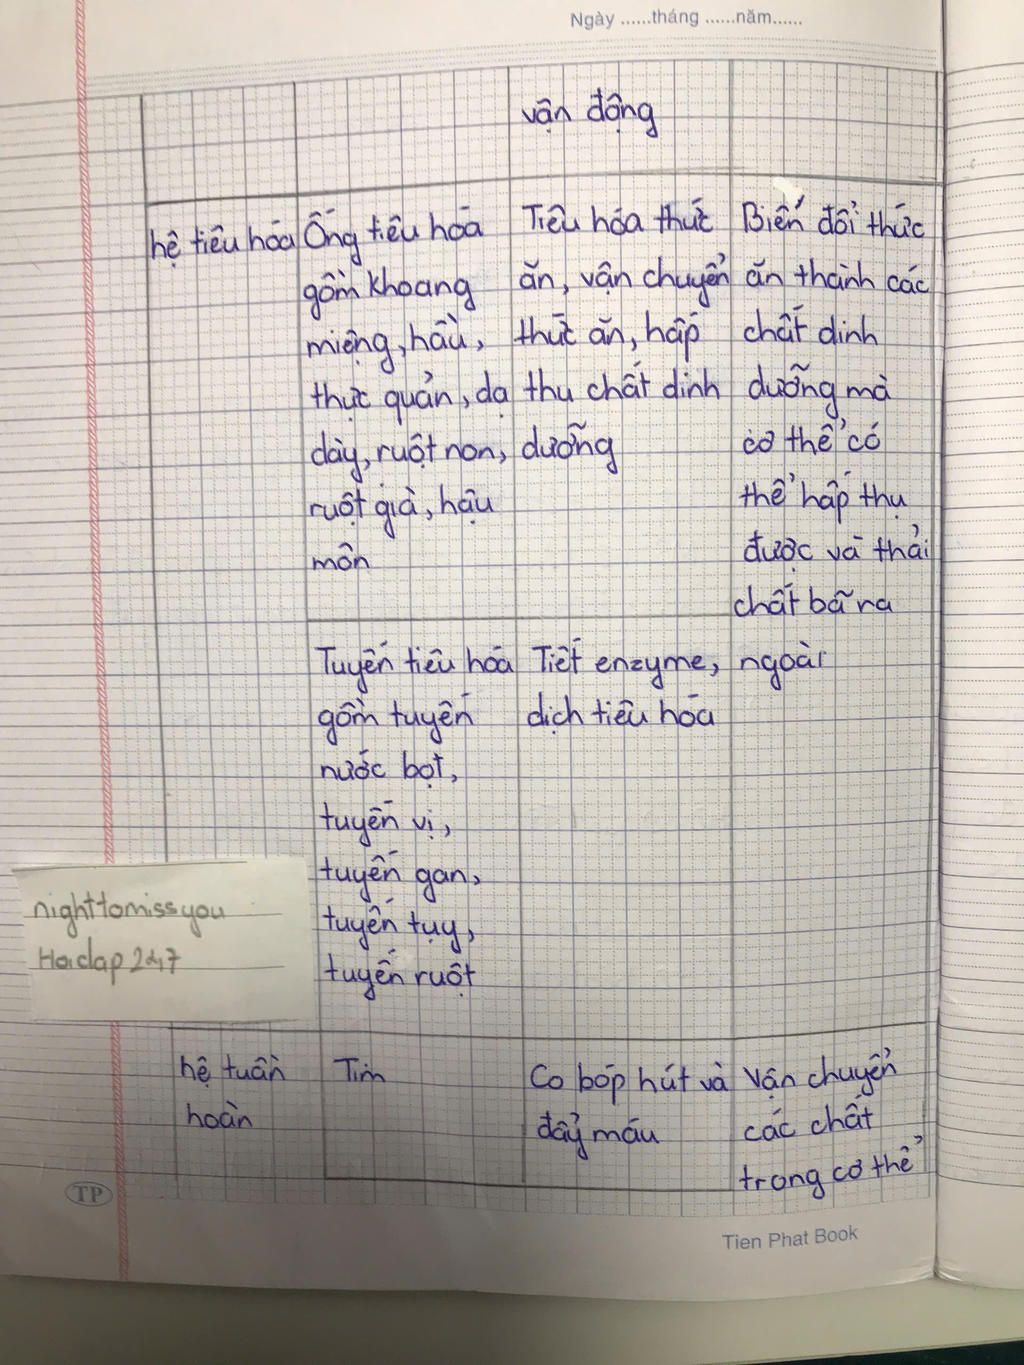 Ngày ......tháng ......năm......
vận động
hệ tiêu hóa
Ống tiêu hóa
gồm khoang
miệng, hầu,
thực quản, dạ
dày, ruột non,
ruột già, hậu
môn
Tiêu hóa thức
ăn, vận chuyển
thức ăn, hấp
thu chất dinh
dưỡng
Biến đổi thức
ăn thành các
chất dinh
dưỡng mà
cơ thể có
thể hấp thụ
được và thải
chất bã ra
ngoài
Tuyến tiêu hóa
gồm tuyến
nước bọt,
tuyến vị,
tuyến gan,
tuyến tụy,
tuyến ruột
Tiết enzyme,
dịch tiêu hóa
nighttomissyou
Hoidap247
hệ tuần
hoàn
Tim
Co bóp hút và
đẩy máu
Vận chuyển
các chất
trong cơ thể
TP
Tien Phat Book